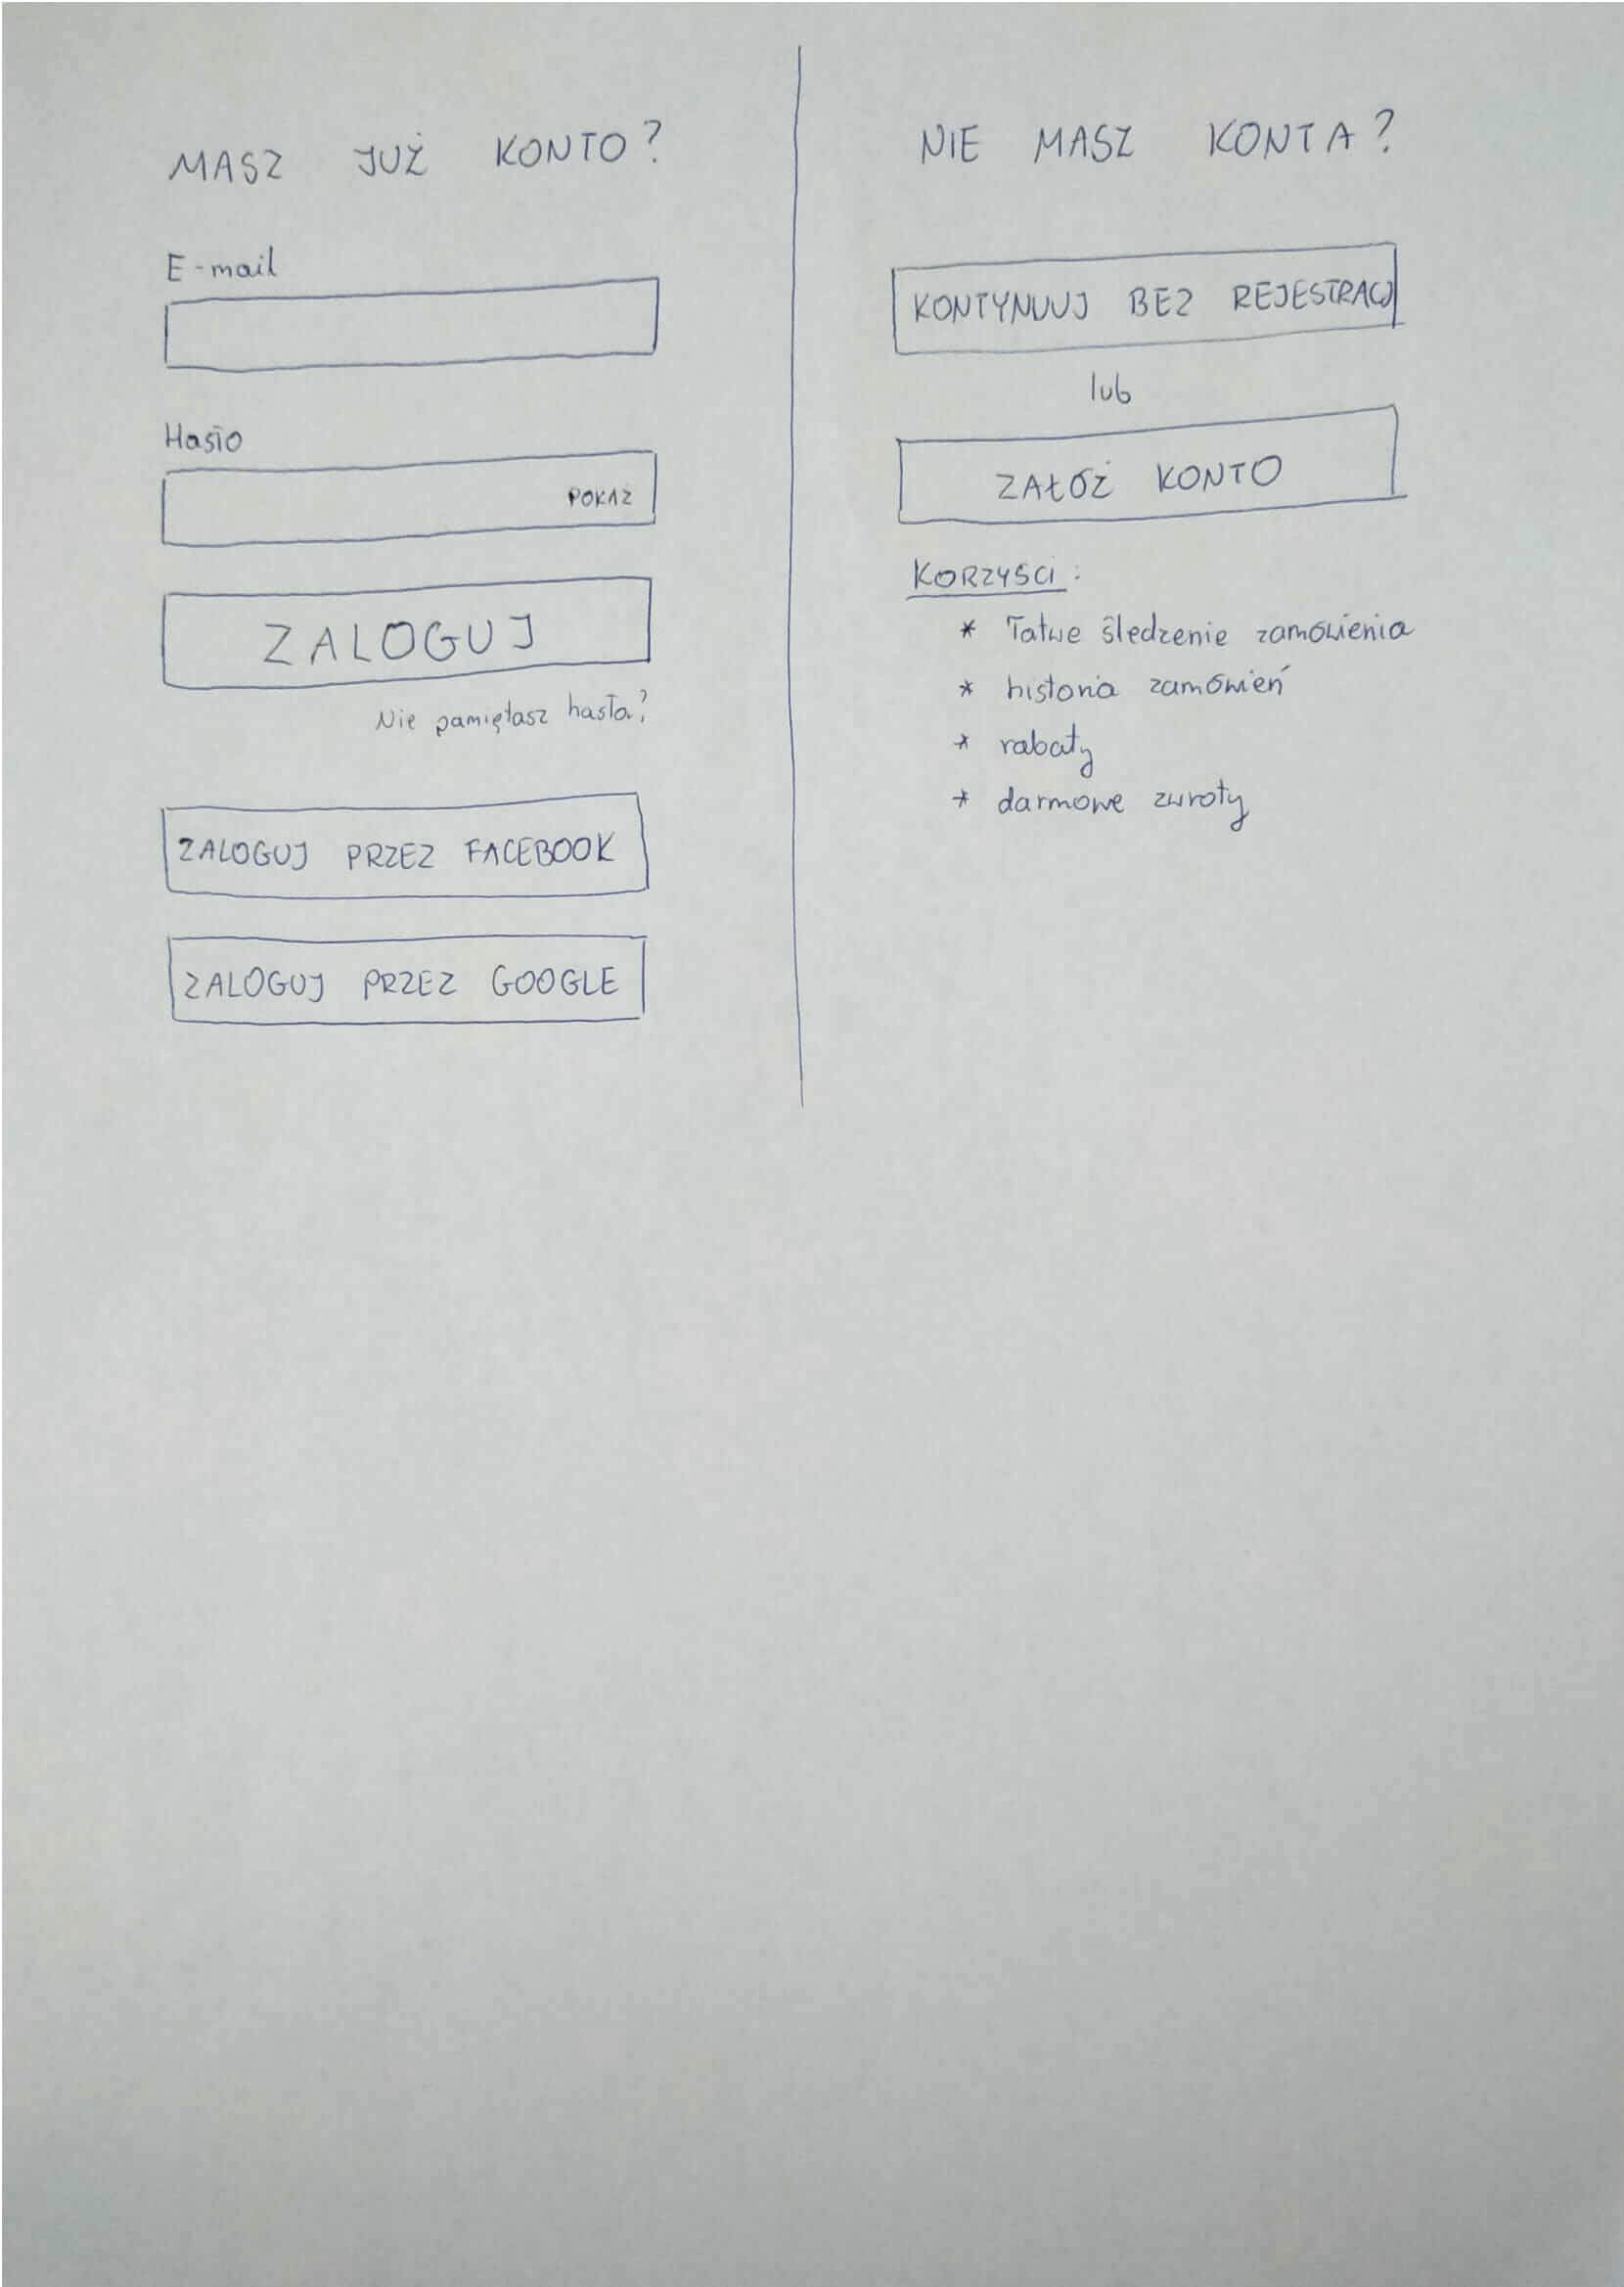 MASZ JUŻ KONTO?
E-mail
Hasło
POKAŻ
ZALOGUJ
Nie pamiętasz hasła?
ZALOGUJ PRZEZ FACEBOOK
ZALOGUJ PRZEZ GOOGLE
NIE MASZ KONTA?
KONTYNUUJ BEZ REJESTRACJ
lub
ZAŁÓŻ KONTO
KORZYŚCI:
* łatwe śledzenie zamówienia
* historia zamówień
* rabaty
* darmowe zwroty